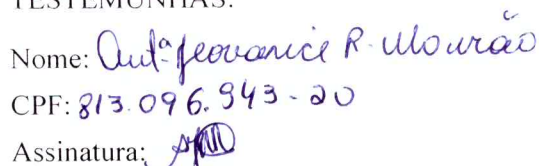 TESTEMUNHAS:
Nome: Antª Jeovanice R. Mourão
CPF: 813.096.943-20
Assinatura: